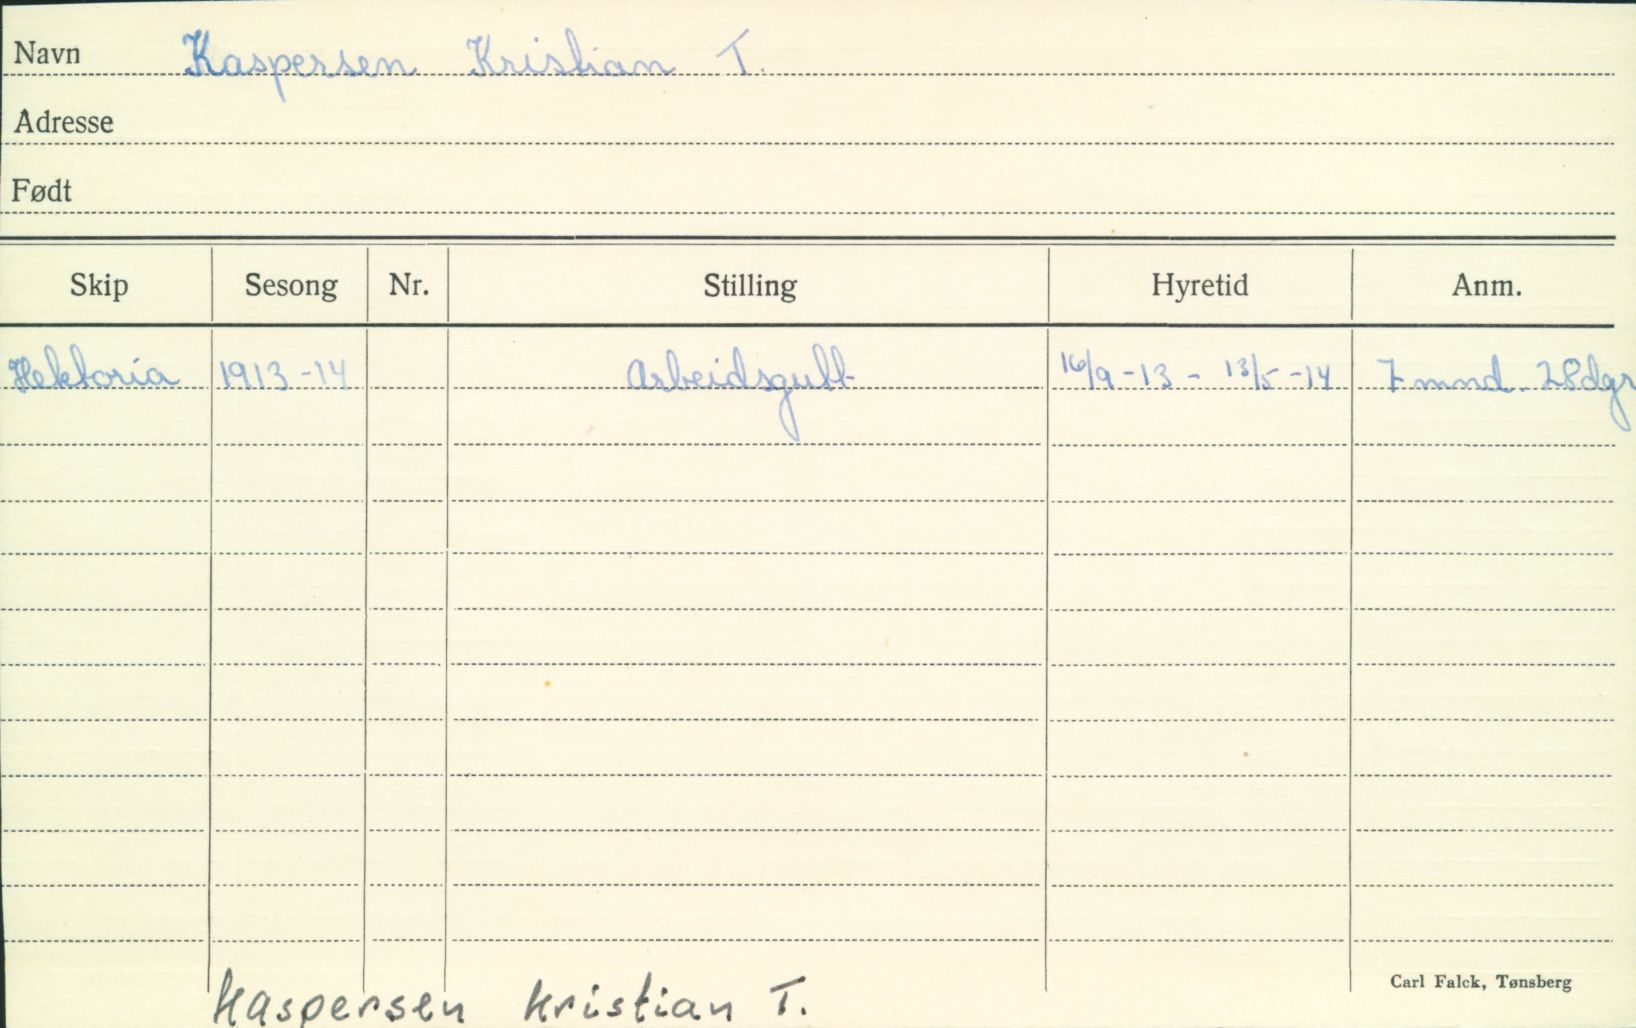 Navn Kaspersen Kristian T.
Adresse
Født
Skip Sesong Nr. Stilling Hyretid Anm.
Hektoria 1913-14 Arbeidsgutt 16/9-13 - 13/5-14 7 mnd. 28dgr
Carl Falck, Tønsberg
Kaspersen Kristian T.